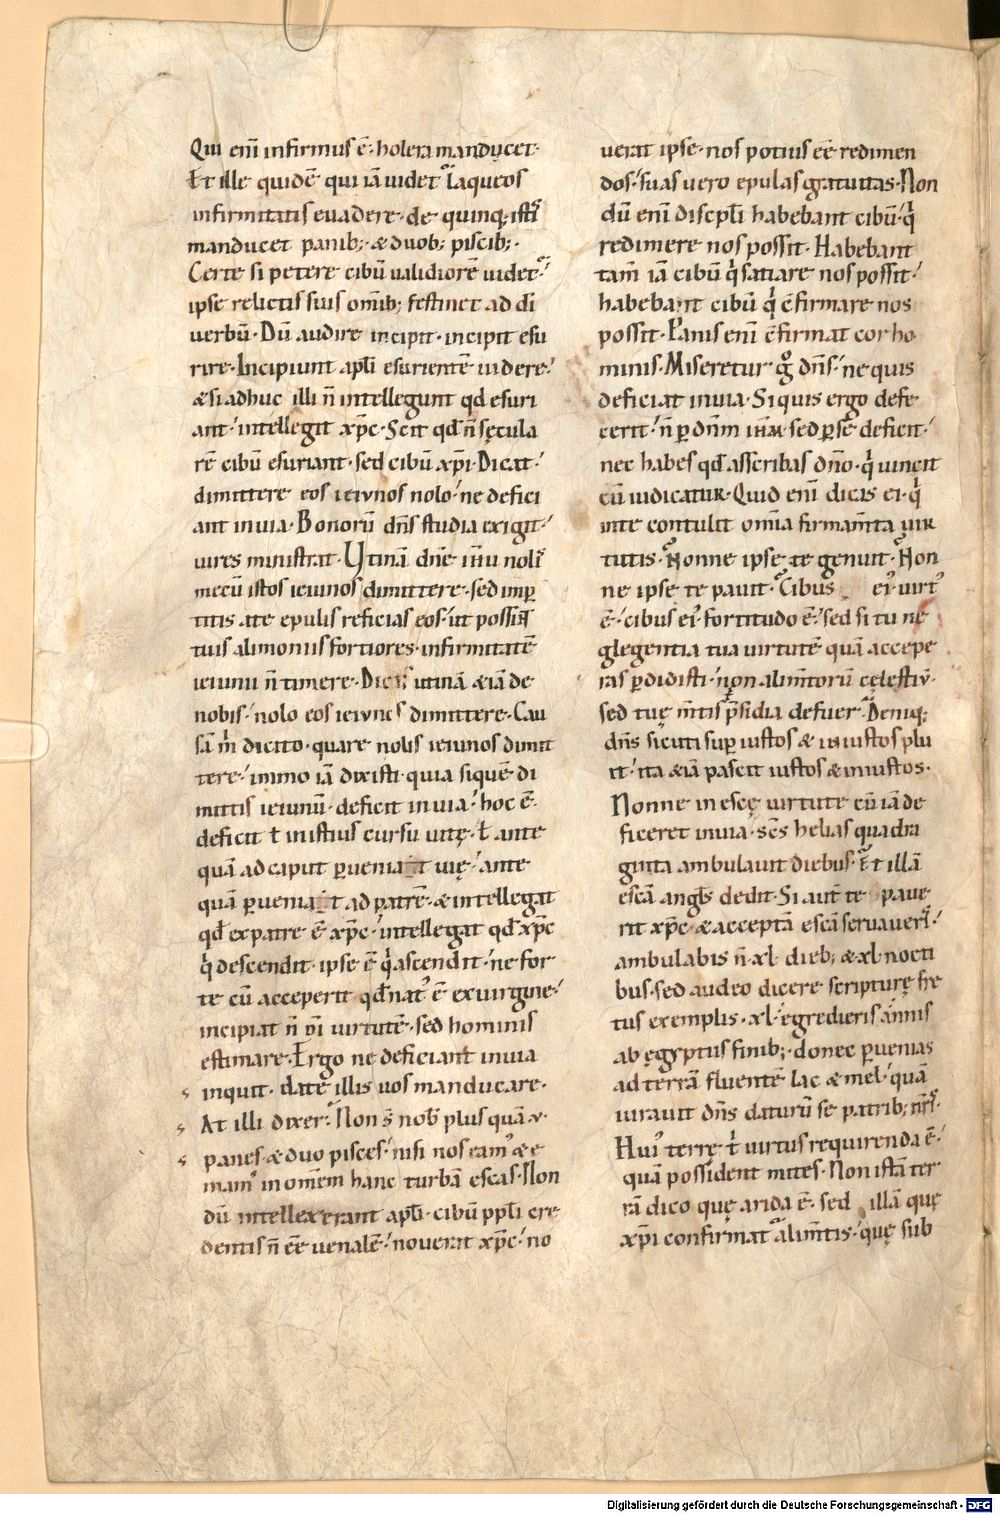 Qui eni̅ infirmus e̅· holera manducet·
Et ille quide̅ qui ia̅ uidet laqueos
infirmitatis euadere· de quinq; isti
manducet panib;· & duob; piscib;·
Certe si petere cibu̅ ualidiore̅ uidet·
ipse relictis suis omib; festinet ad di̅
uerbu̅· Du̅ audire incipit· incipit esu
rire· Incipiunt apl̅i esuriente̅ uidere·
& si adhuc illi n̅ intellegunt qd̅ esuri
ant· intellegit xp̅c· Scit qd̅ n̅ sęcula
re̅ cibu̅ esuriant· sed cibu̅ xp̅i· Dicat·
dimittere eos ieiunos nolo· ne defici
ant in uia· Bonoru̅ dn̅s studia exigit·
uires ministrat· Utina̅ dn̅e ih̅u noli
mecu̅ istos ieiunos dimittere· sed imp
titis a te epulis reficias eos· ut possint
tuis alimoniis fortiores· infirmitate̅
ieiunii n̅ timere· Dicas utina̅ & ia̅ de
nobis· nolo eos ieiunos dimittere· Cau
sa̅ m̅ dicito· quare nolis ieiunos dimit
tere· immo ia̅ dixisti· quia si que̅ di
mittis ieiunu̅· deficit in uia· hoc e̅·
deficit ł in istius cursu uitę· ł ante
qua̅ ad caput perueniat uię· ante
qua̅ perueniat ad patre̅· & intellegat
qd̅ ex patre e̅ xp̅c· intellegat qd̅ xp̅c
q descendit· ipse e̅ q ascendit· ne for
te cu̅ acceperit qd̅ nat' e̅ ex uirgine·
incipiat n̅ di̅ uirtute̅· sed hominis
estimare· Ergo ne deficiant in uia
inquit· date illis uos manducare·
At illi dixer· Non s̅ nob̅ plus qua̅ v·
panes· & duo pisces· nisi nos eam' & e
mam' in ome̅m hanc turba̅ escas· Non
du̅ intellexerant apl̅i· cibu̅ ppl̅i cre
dentis n̅ e̅e uenale̅· nouerat xp̅c· no
uerat ipse· nos potius e̅e redimen
dos· suas uero epulas gratuitas· Non
du̅ eni̅ discpl̅i habebant cibu̅· q
redimere nos possit· Habebant
tam̅ ia̅ cibu̅ q satiare nos possit·
habebant cibu̅ q c̅firmare nos
possit· Panis eni̅ c̅firmat cor ho
minis· Miseretur g dn̅s· ne quis
deficiat in uia· Si quis ergo defe
cerit· n̅ p dn̅m sed p se deficit·
nec habes qd̅ asscribas dn̅o· q uincit
cu̅ iudicatur· Quid eni̅ dicis ei· q
in te contulit om̅ia firmam̅ta uir
tutis· Nonne ipse te genuit· Non
ne ipse te pauit· Cibus ei' uirt'
e̅· cibus ei' fortitudo e̅· sed si tu ne
glegentia tua uirtute̅ qua̅ accepe
ras perdidisti· non alim̅toru̅ cęlestiu̅·
sed tuę m̅tis p̅fidia defuer· Deniq;
dn̅s sicuti super iustos & iniustos plu
it· ita & ia̅ pascit iustos & iniustos·
Nonne in escę uirtute cu̅ ia̅ de
ficeret in uia· sc̅s helias quadra
ginta ambulauit diebus· Et illa̅
esca̅ angl̅s dedit· Si aut̅ te paue
rit xp̅c· & accepta̅ esca̅ seruaueri·
ambulabis n̅ xl· dieb; & xl· nocti
bus· sed audeo dicere scripturę fre
tus exemplis· xl· egredieris annis
ab ęgyptus finib;· donec peruenias
ad terra̅ fluente̅ lac & mel· qua̅
iurauit dn̅s daturu̅ se patrib; nr̅i·
Hui' terrę t̅ uirtus requirenda e̅·
qua̅ possident mites· Non ista̅ ter
ra̅ dico quę arida e̅· sed illa̅ quę
xp̅i confirmat alim̅tis· quę sub
Digitalisierung gefördert durch die Deutsche Forschungsgemeinschaft - DFG